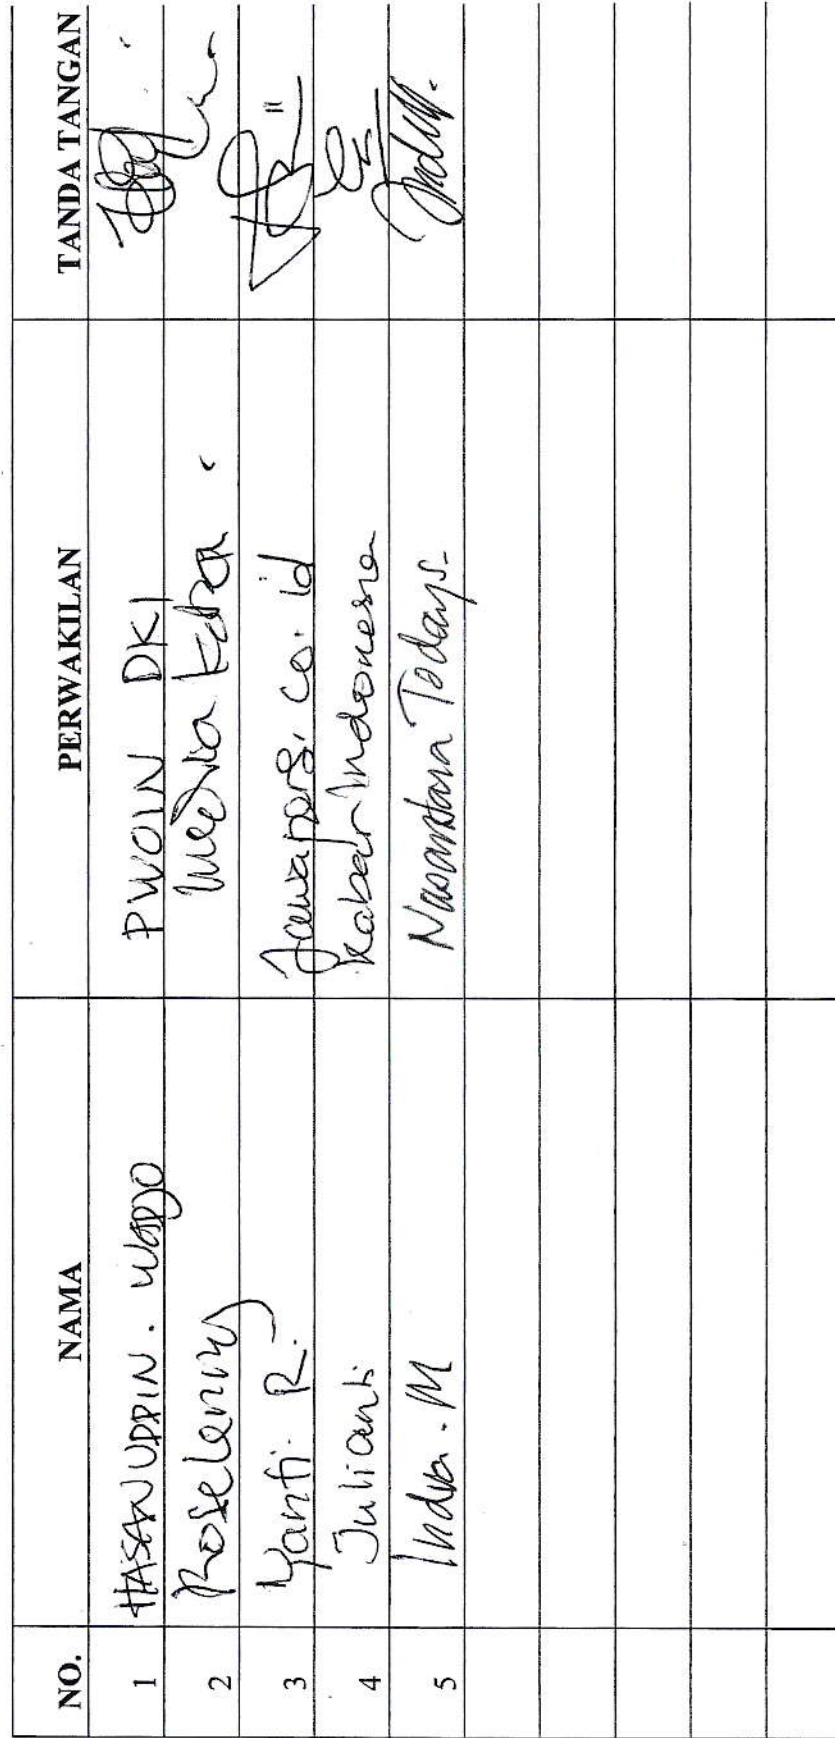 NO. NAMA PERWAKILAN TANDA TANGAN
1 HASANUDDIN. WADJO PWOIN DKI
2 Roseleny Media
3 Yanti. R. Jawapers. co. id
4 Julianti Kabar Indonesia
5 Indra. M Nusantara Todays